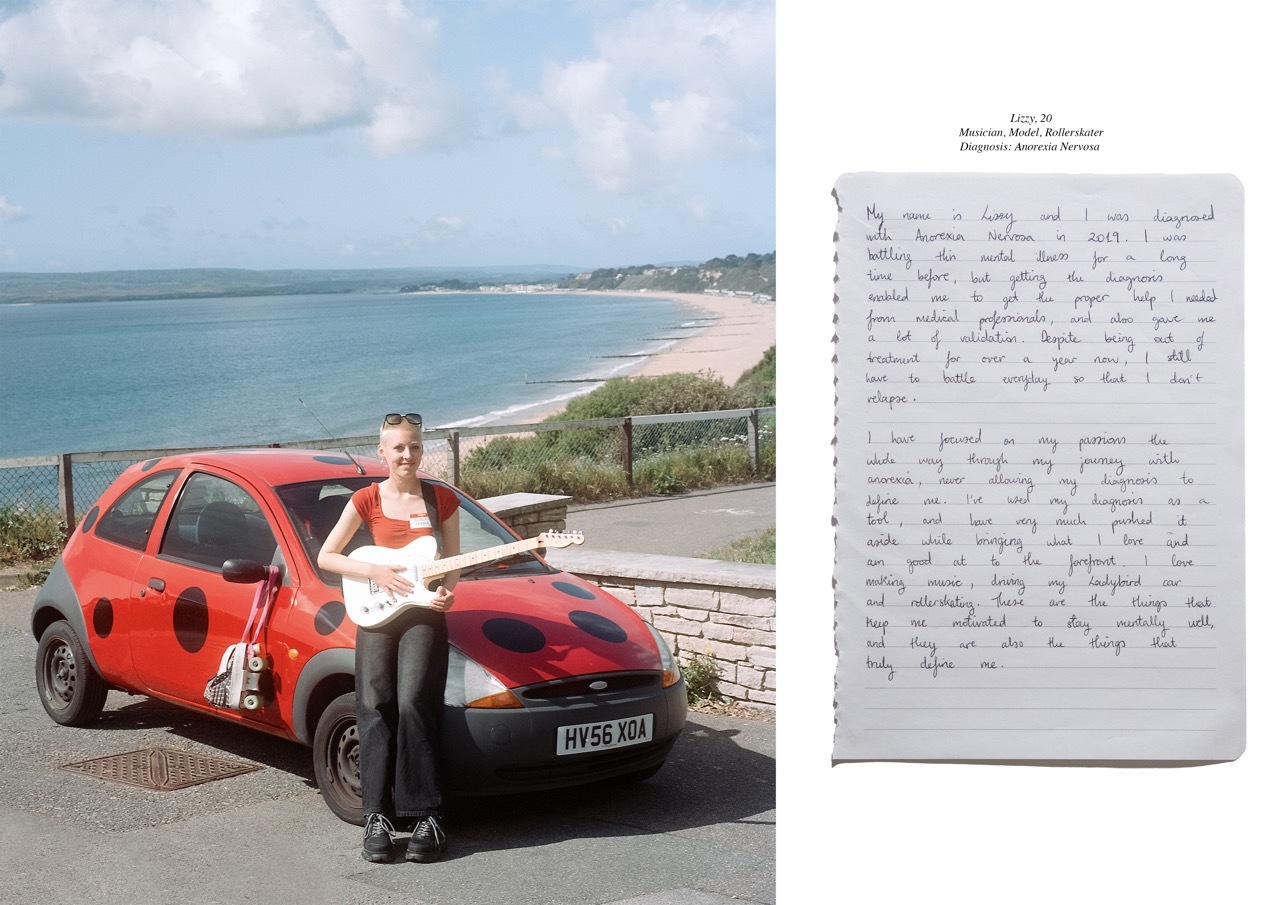 HV56 XOA
Lizzy, 20
Musician, Model, Rollerskater
Diagnosis: Anorexia Nervosa
My name is Lizzy and I was diagnosed
with Anorexia Nervosa in 2019. I was
battling this mental illness for a long
time before, but getting the diagnosis
enabled me to get the proper help I needed
from medical professionals, and also gave me
a lot of validation. Despite being out of
treatment for over a year now, I still
have to battle everyday so that I don't
relapse.
I have focused on my passions the
whole way through my journey with
anorexia, never allowing my diagnosis to
define me. I've used my diagnosis as a
tool, and have very much pushed it
aside while bringing what I love and
am good at to the forefront. I love
making music, driving my Ladybird car
and rollerskating. These are the things that
keep me motivated to stay mentally well,
and they are also the things that
truly define me.